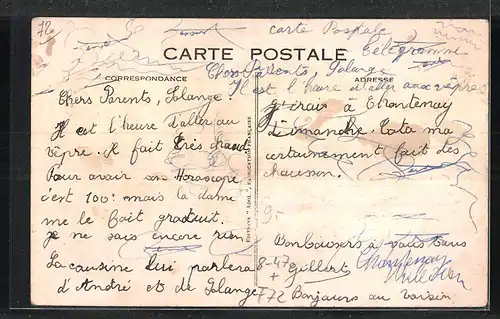 72
carte Postale
CARTE POSTALE
Télégramme
CORRESPONDANCE
ADRESSE
Chers Parents, Solange
Il est l'heure d'aller aux vêpres
Chers Parents, Solange.
Il est l'heure d'aller au
vêpre. Il fait très chaud
Pour avoir un Horoscope
c'est 100f mais la dame
me le Fait gratuit.
je ne sais encore rien
La cousine lui parlera
d'André et de Solange
J'irais à Chantenay
Dimanche. Tata ma
certainement fait des
chausson.
9-
Bonbaisers à vous tous
Gilbert
8-47
+
772
Chantenay
Bonjours au voisin